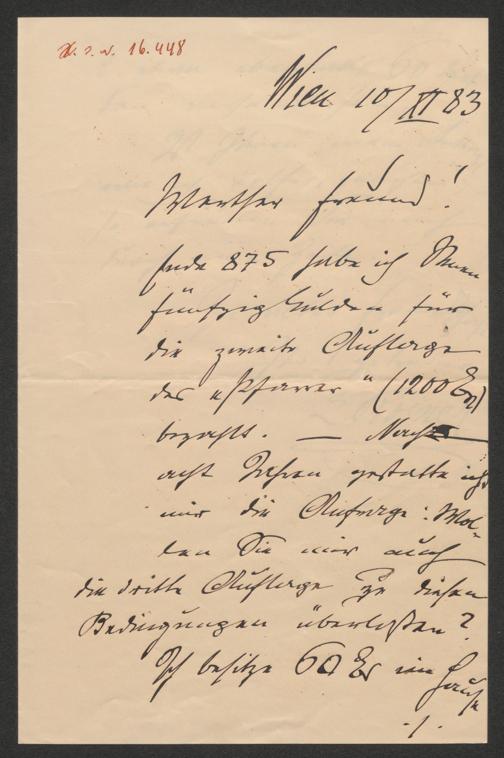 H. I. N. 16.448
Wien 10/XI 83
Werther Freund!
Ende 875 habe ich Ihnen
fünfzig Gulden für
die zweite Auflage
des „Pfarrer“ (1200 Ex)
bezahlt. — Nach
acht Jahren gestatte ich
mir die Anfrage: Wol-
len Sie mir auch
die dritte Auflage zu diesen
Bedingungen überlassen?
Ich besitze 60 Ex im Hause
./.